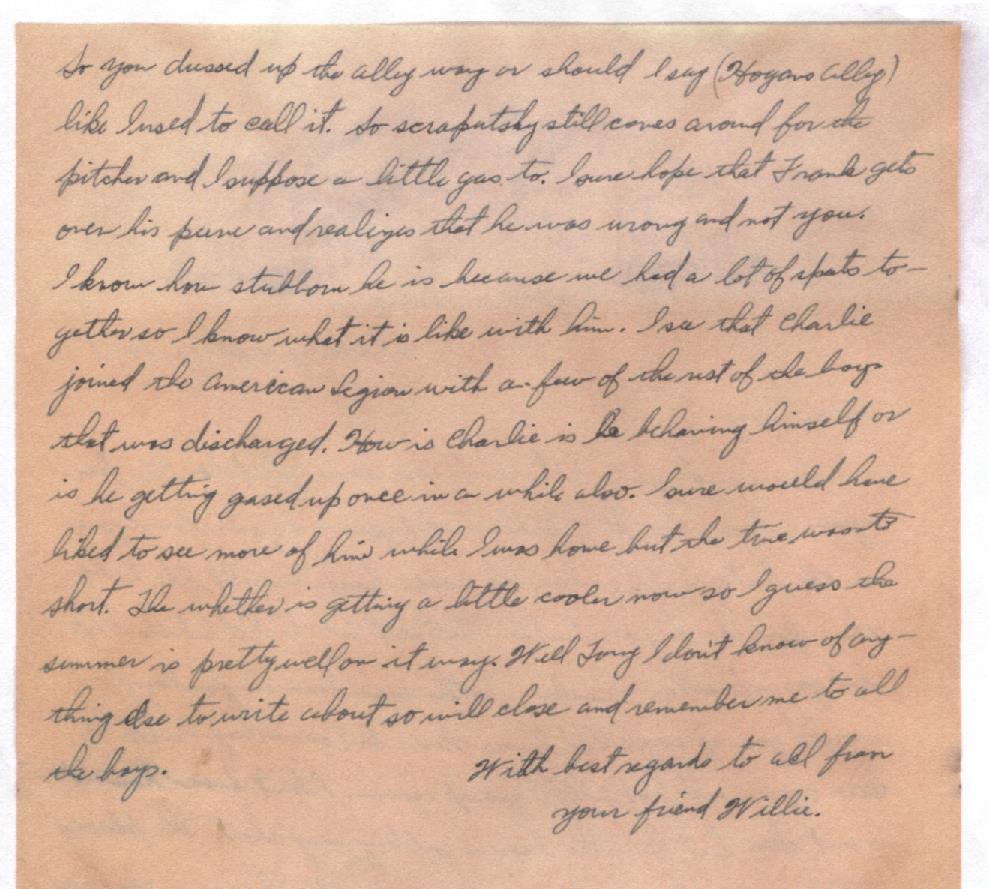 So you dressed up the alley way or should I say (Hogans alley)
like I used to call it. So scraputsky still comes around for the
pitcher and I suppose a little gas to. I sure hope that Frank gets
over his peeve and realizes that he was wrong and not you.
I know how stubborn he is because we had a lot of spats to-
gether so I know what it is like with him. I see that Charlie
joined the American Legion with a few of the rest of the boys
that was discharged. How is Charlie is he behaving himself or
is he getting gased up once in a while also. I sure would have
liked to see more of him while I was home but the time was to
short. The whether is getting a little cooler now so I guess the
summer is pretty well on it way. Well Tony I don't know of any-
thing else to write about so will close and remember me to all
the boys.
With best regards to all from
your friend Willie.